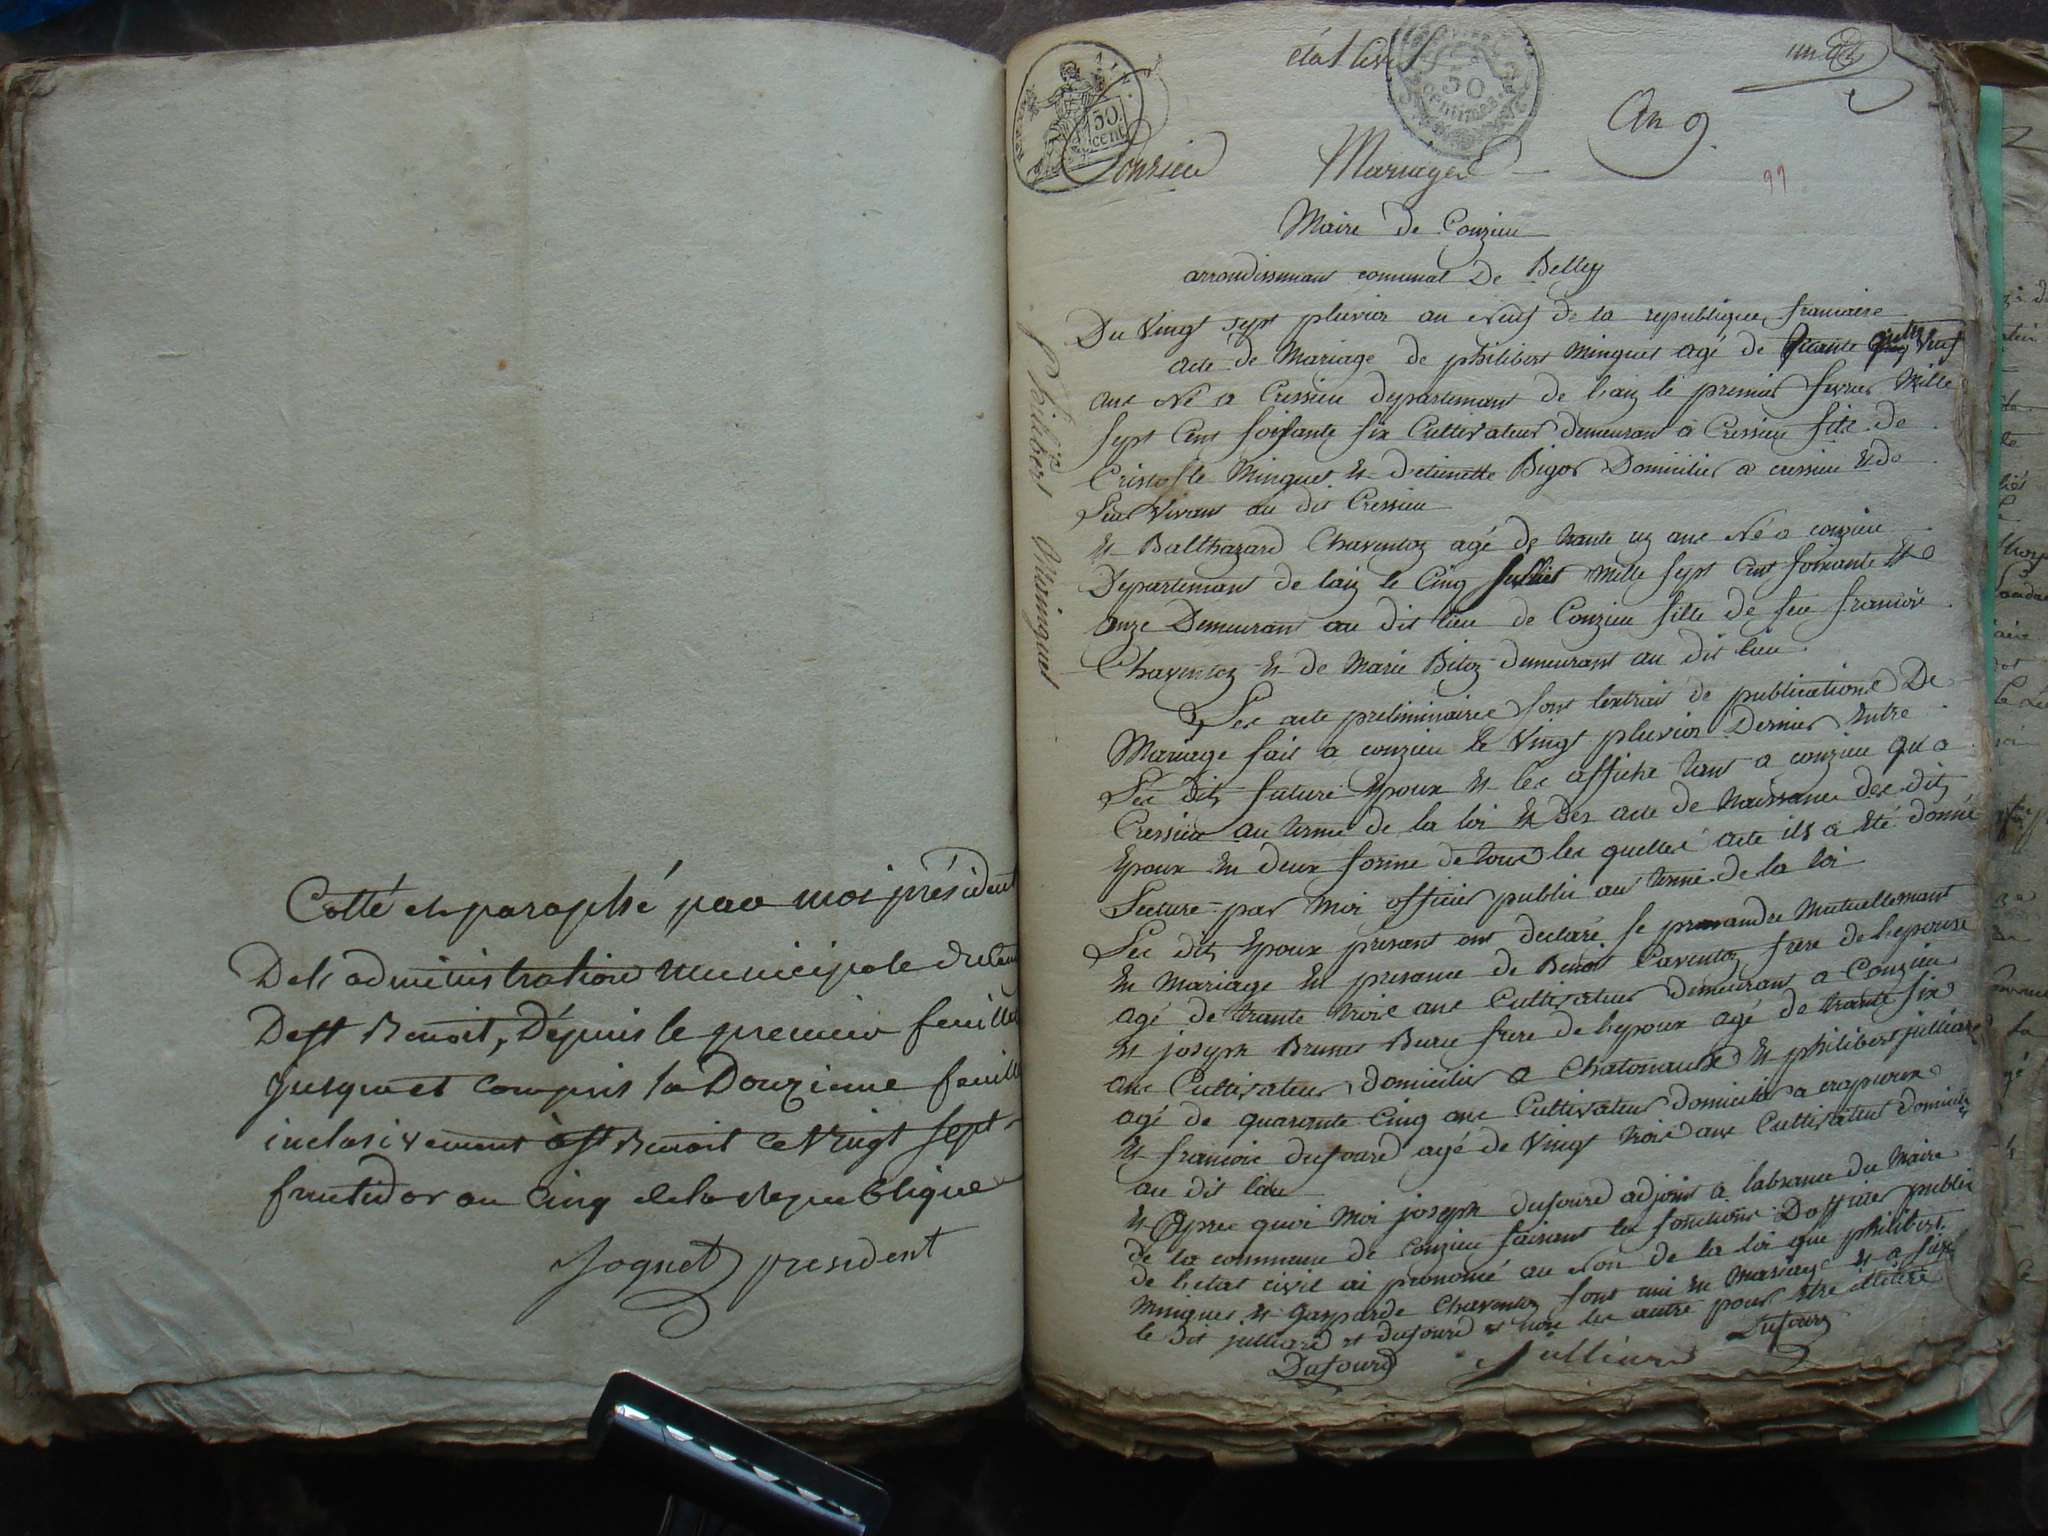 Cotté et paraphé par moi président
De l'administration municipale du Can
De St Benoit, Dépuis le premier feuillet
jusques et compris la Douzieme feuille
inclusivement a St Benoit ce vingt sept
fructidor an cinq de la Republique
Joguet president
état civil
50
centimes
50
cent
An 9
99
Conzieu Mariages
Maire de Conzieu
arrondissemant comunal De Belley
Du Vingt sept pluvios an Neuf de la republique francaise
acte de Mariage de philibert Minguet agé de trante Neuf
ans Né a Cressieu departemant de l'ain le premier fevrier Mille
sept Cent soissante six Cultivateur demeurant à Cressieu fils de
Cristofle Minguet et d'etienette Bigot Domicilier a cressieu et de
leur vivant au dit Cressieu
et Balthazard Chaventon agé de trante un ans Né a conzieu
Departemant de lain le Cinq Julliet Mille sept Cent soixante et
onze Demeurant au dit lieu de Conzieu fille de feu francois
Chaventon et de Marie Bitoz demeurant au dit lieu
Les acte preliminaires sont lextrait de publications De
Mariage fait a conzieu le Vingt pluvios Dernier entre
Les dits futurs Epoux et les affiche tant a conzieu qu'a
Cressieu au terme de la loi et des acte de Naissance des dits
Epoux en deux forme de tous les quelles acte ils a été donné
Lecture par Moi officier public au terme de la loi
Les dits Epoux presant ont declaré se prenandre Mutuellemant
en Mariage en presance de Benoit Caventon frere de l'epouse
agé de trante trois ans Cultivateur demeurant a Conzieu
et joseph Brunet Beau frere de l'epoux agé de trante six
ans Cultivateur domicilier a Chatonaux et philibert julliard
agé de quarante Cinq ans Cultivateur domicilier a crapoux
et francois dufourd agé de Vingt trois ans Cultivateur domicilié
au dit lieu
et Apres quoi Moi joseph dufourd adjoint a labsance du Maire
de la commune de Conzieu faisant les fonctions D'officier public
de l'etat civil ai prononcé au Nom de la loi que philibert
Minguet et Gasparde Chaventon sont uni en Mariage et a signé
le dit julliard et dufourd et non les autre pour etre illiteré
Dufourd Julliard Dufourd
Philibert Minguet